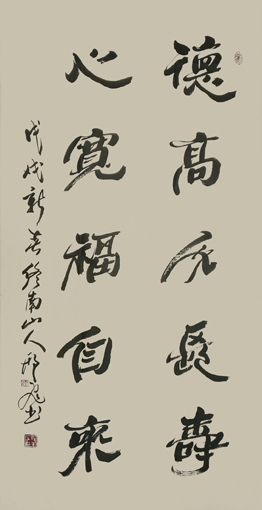 德高人長壽
心寬福自來
戊戌新春終南山人